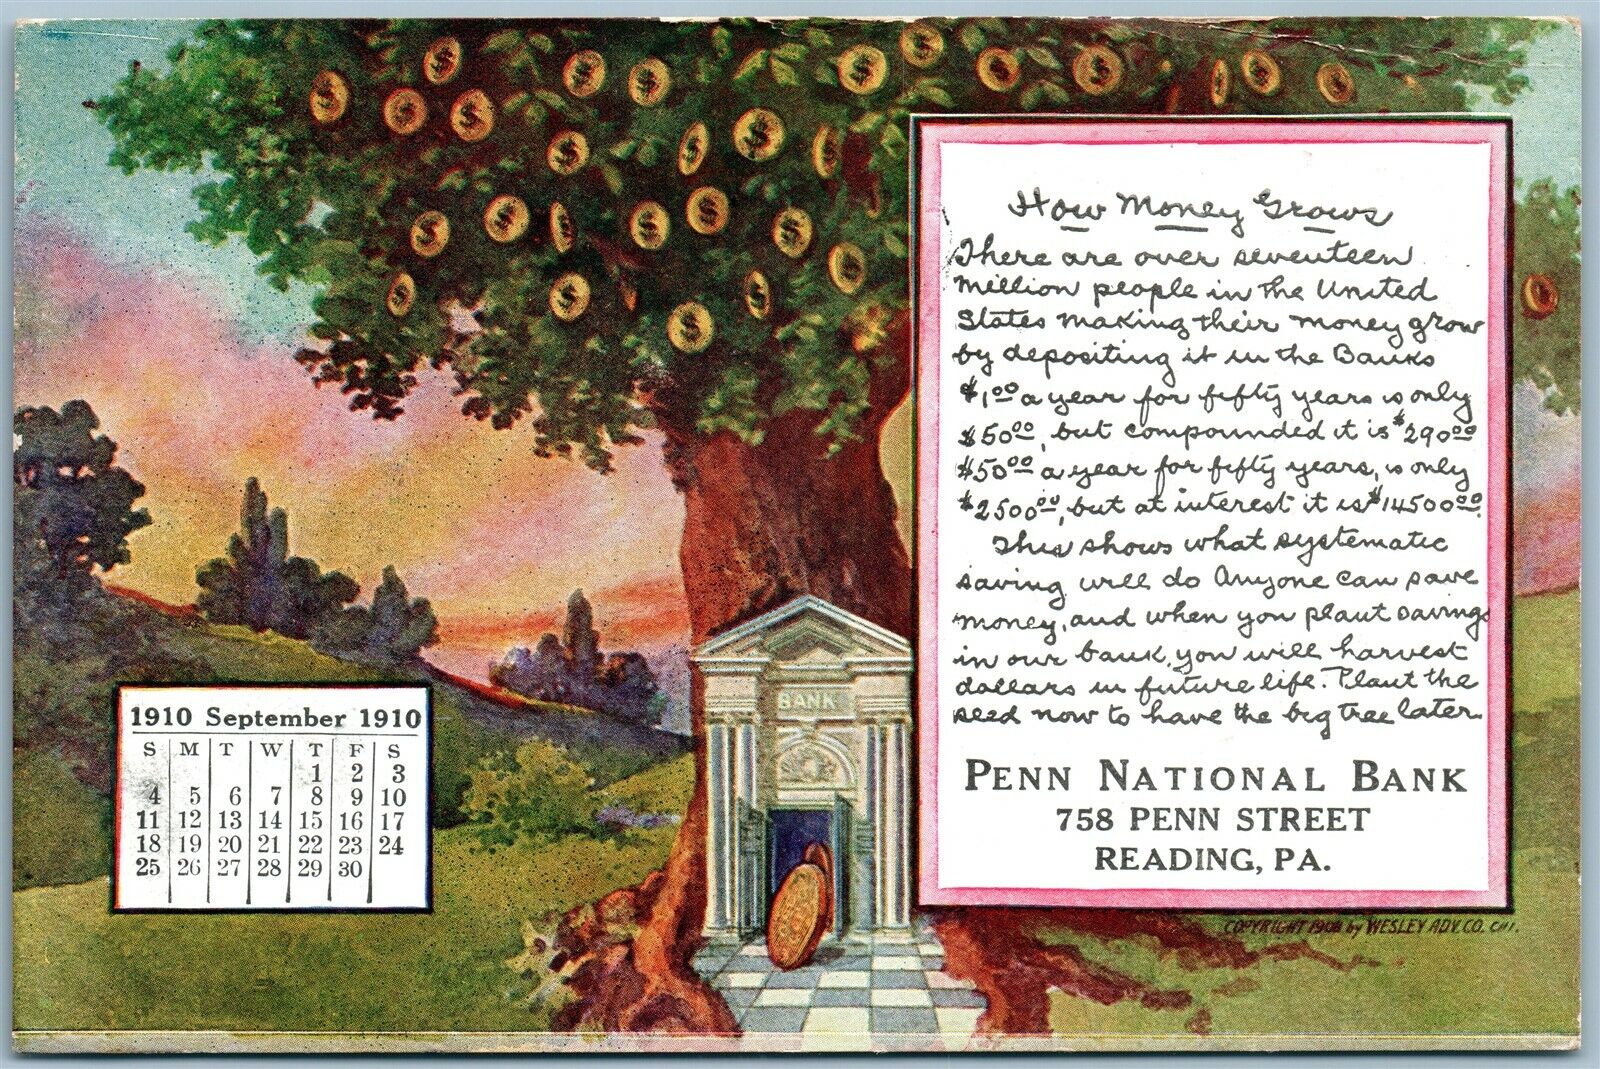 How Money Grows
There are over seventeen
million people in the United
States making their money grow
by depositing it in the Banks
$1.00 a year for fifty years is only
$50.00, but compounded it is $290.00
$50.00 a year for fifty years, is only
$2500.00, but at interest it is $14500.00.
This shows what systematic
saving will do Anyone can save
money, and when you plant savings
in our bank, you will harvest
dollars in future life. Plant the
seed now to have the big tree later.
PENN NATIONAL BANK
758 PENN STREET
READING, PA.
COPYRIGHT 1908 by WESLEY ADV. CO. CHI.
BANK
1910 September 1910
S M T W T F S
1 2 3
4 5 6 7 8 9 10
11 12 13 14 15 16 17
18 19 20 21 22 23 24
25 26 27 28 29 30